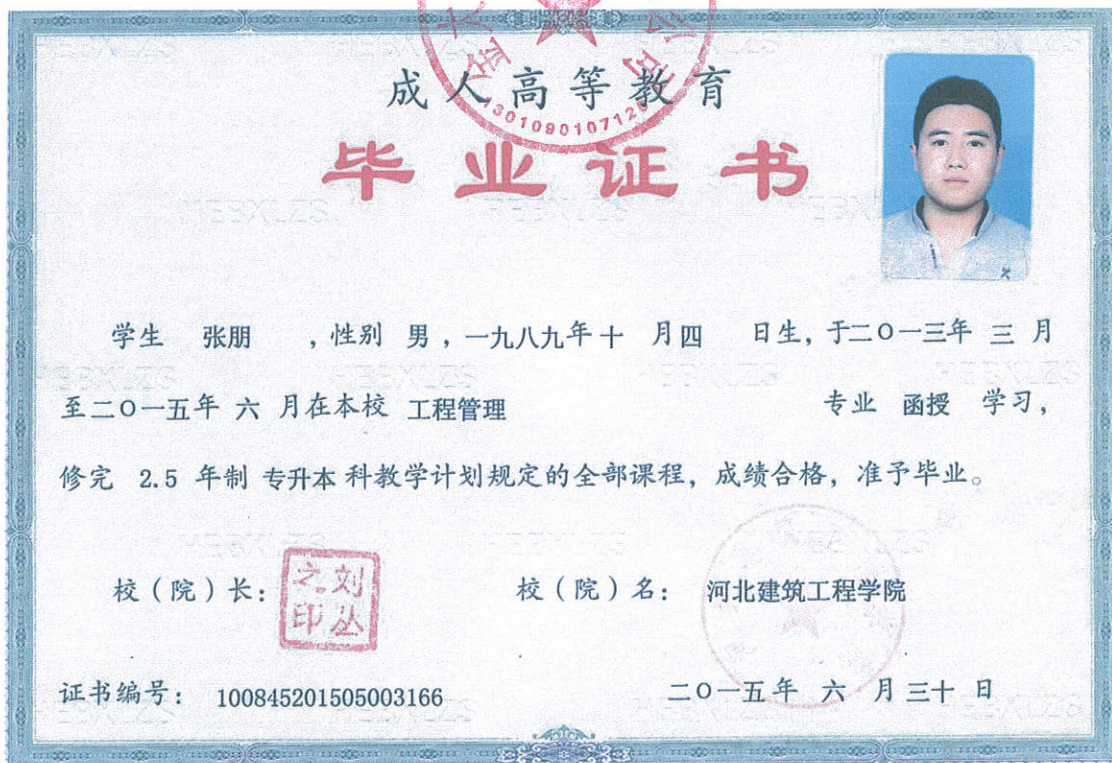 成人高等教育
130109010712
毕业证书
学生 张朋 ,性别 男,一九八九年十 月四 日生,于二〇一三年 三 月
至二〇一五年 六 月在本校 工程管理 专业 函授 学习,
修完 2.5 年制 专升本 科教学计划规定的全部课程,成绩合格,准予毕业。
校(院)长: 刘丛之印 校(院)名: 河北建筑工程学院
证书编号: 100845201505003166 二〇一五年 六 月三十 日